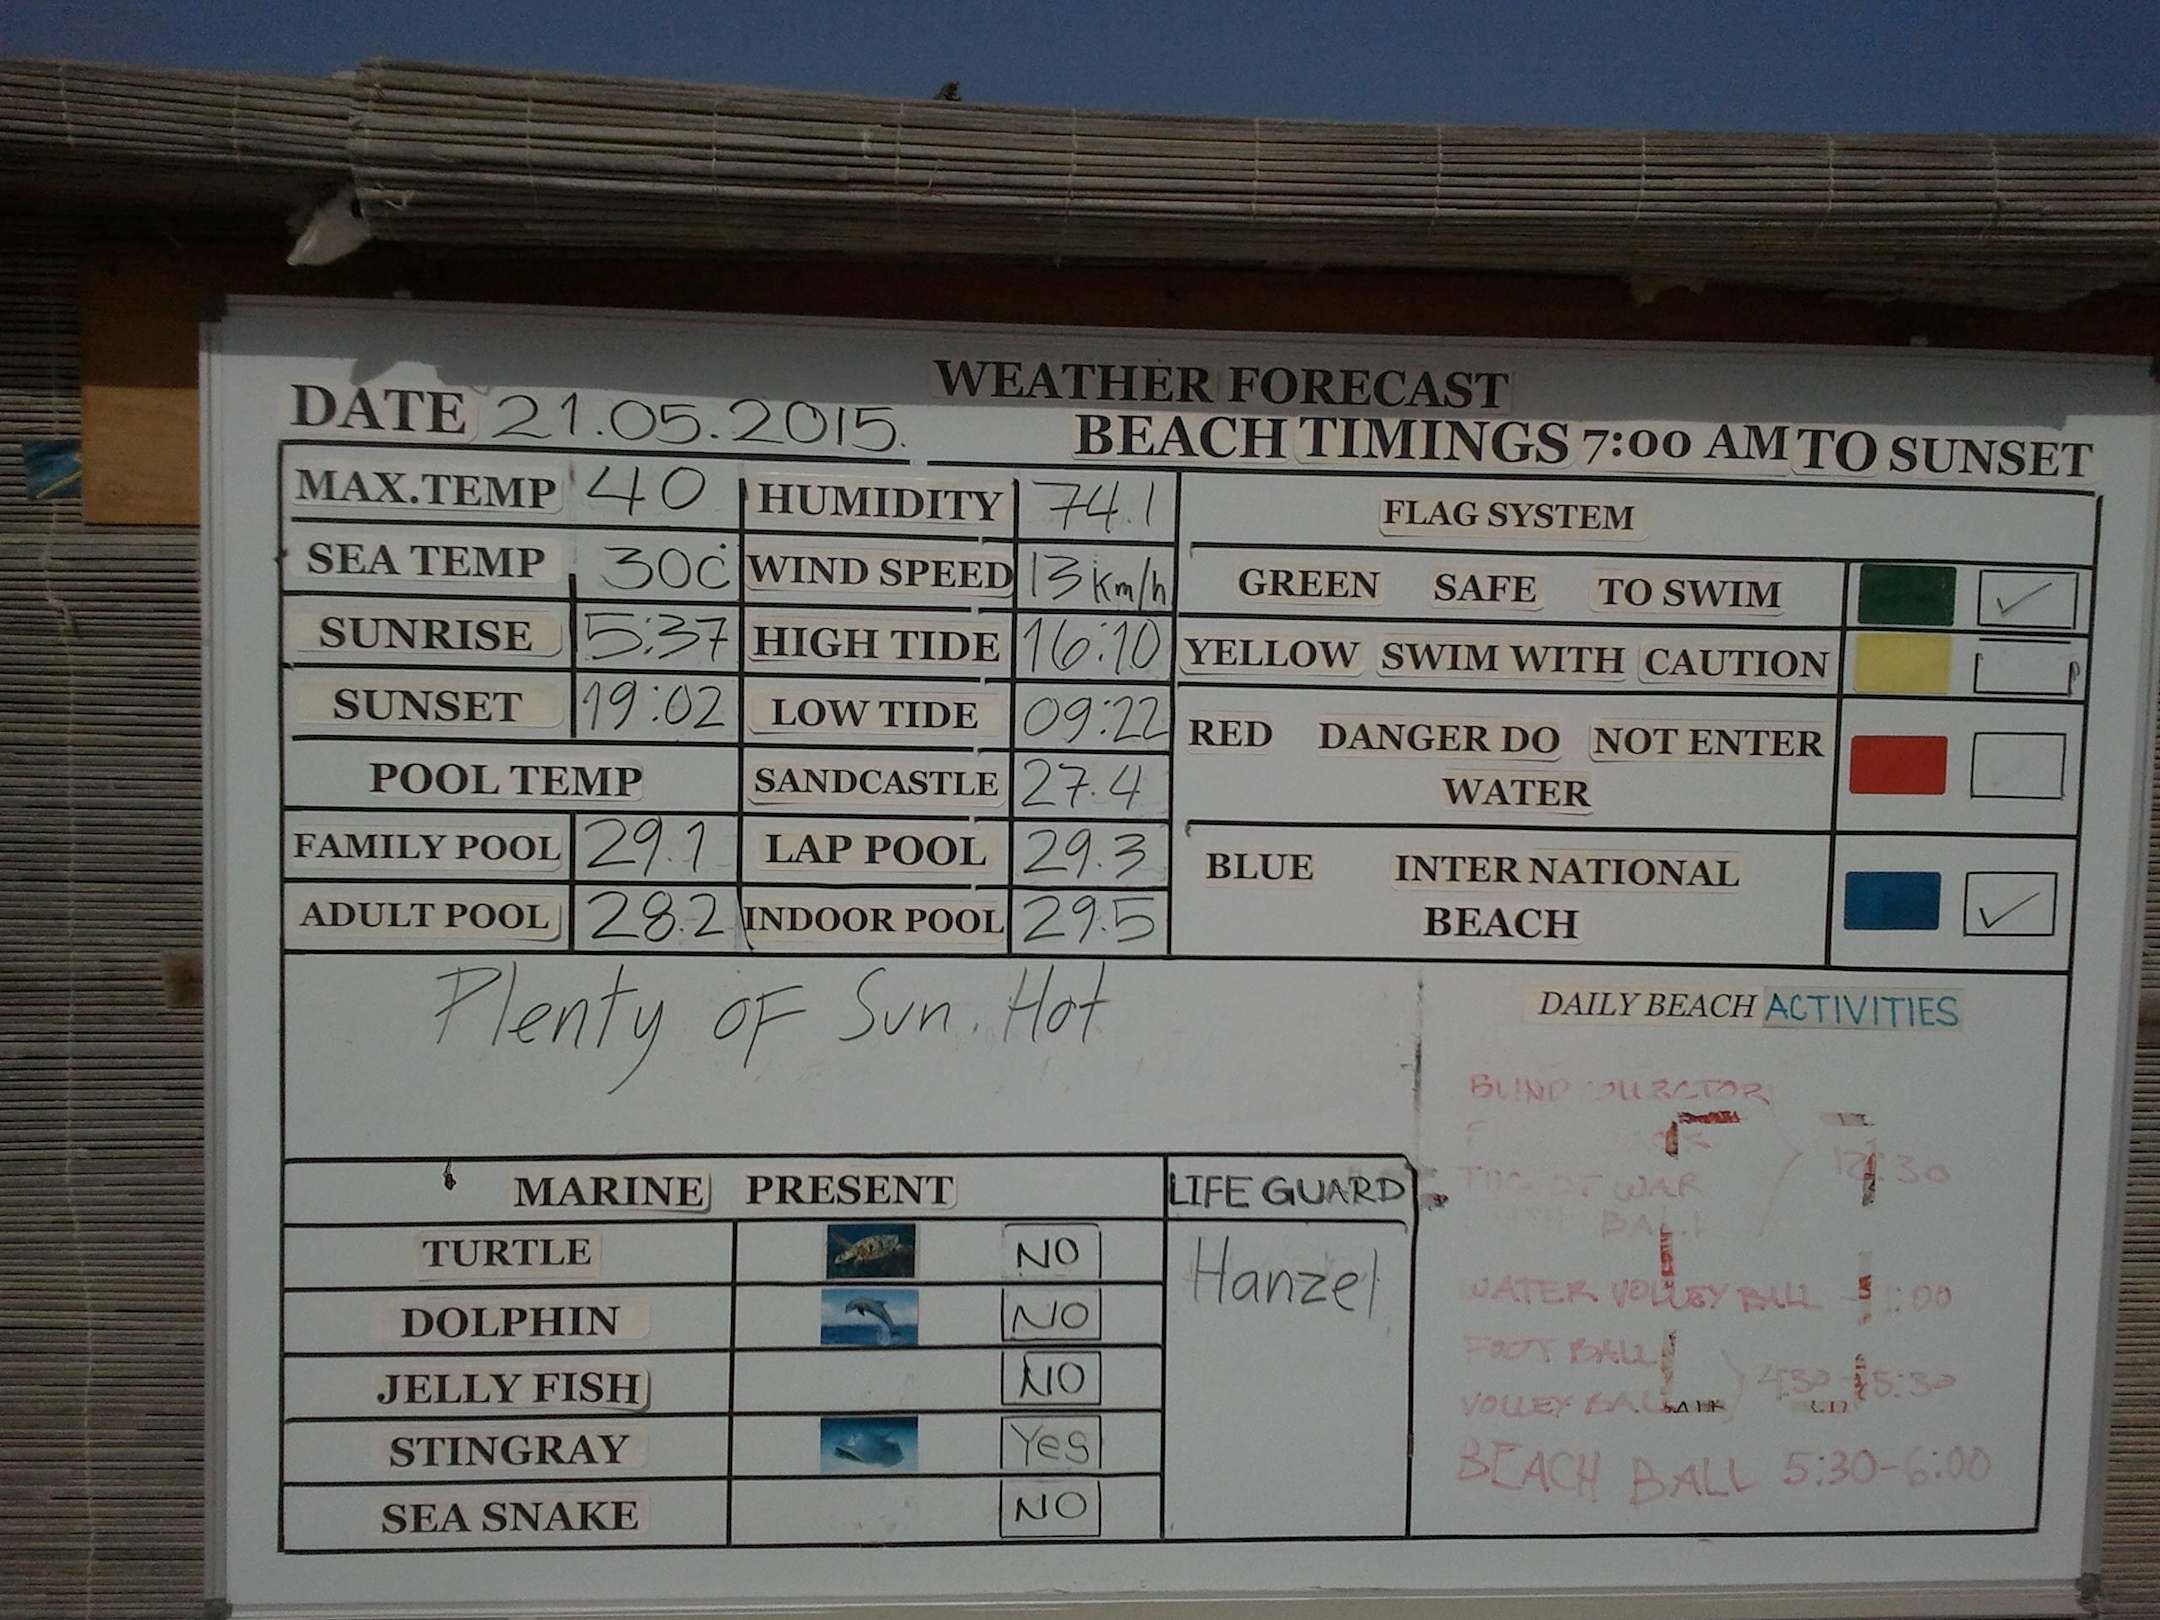 WEATHER FORECAST
DATE 21.05.2015.
BEACH TIMINGS 7:00 AM TO SUNSET
MAX.TEMP 40 HUMIDITY 74.1
SEA TEMP 30C WIND SPEED 13 km/h
SUNRISE 5:37 HIGH TIDE 16:10
SUNSET 19:02 LOW TIDE 09:22
POOL TEMP SANDCASTLE 27.4
FAMILY POOL 29.1 LAP POOL 29.3
ADULT POOL 28.2 INDOOR POOL 29.5
FLAG SYSTEM
GREEN SAFE TO SWIM
YELLOW SWIM WITH CAUTION
RED DANGER DO NOT ENTER
WATER
BLUE INTER NATIONAL
BEACH
Plenty OF Sun. Hot
MARINE PRESENT
TURTLE NO
DOLPHIN NO
JELLY FISH NO
STINGRAY Yes
SEA SNAKE NO
LIFE GUARD
Hanzel
DAILY BEACH ACTIVITIES
WAR
BALL
WATER VOLLEY BALL
FOOT BALL
VOLLEY BALL
BEACH BALL 5:30-6:00